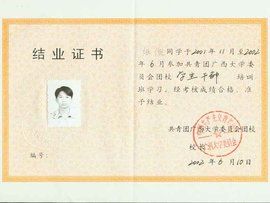 结业证书
编号:
同学于2001年11月至2002
年6月参加共青团广西大学委
员会团校 学生干部 培训
班学习。经考核成绩合格,准
予结业。
共青团广西大学委员会团校
校长:
2002年6月10日